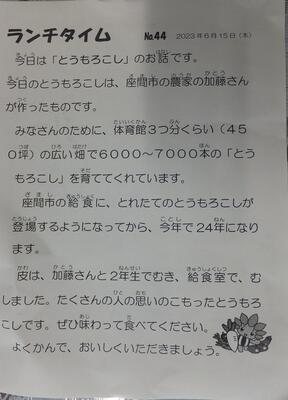 ランチタイム No.44 2023年6月15日(木)
今日は「とうもろこし」のお話です。
今日のとうもろこしは、座間市の農家の加藤さん
が作ったものです。
みなさんのために、体育館3つ分くらい(45
0坪)の広い畑で6000～7000本の「とう
もろこし」を育ててくれています。
座間市の給食に、とれたてのとうもろこしが
登場するようになってから、今年で24年になり
ます。
皮は、加藤さんと2年生でむき、給食室で、む
しました。たくさんの人の思いのこもったとうもろ
こしです。ぜひ味わって食べてください。
よくかんで、おいしくいただきましょう。